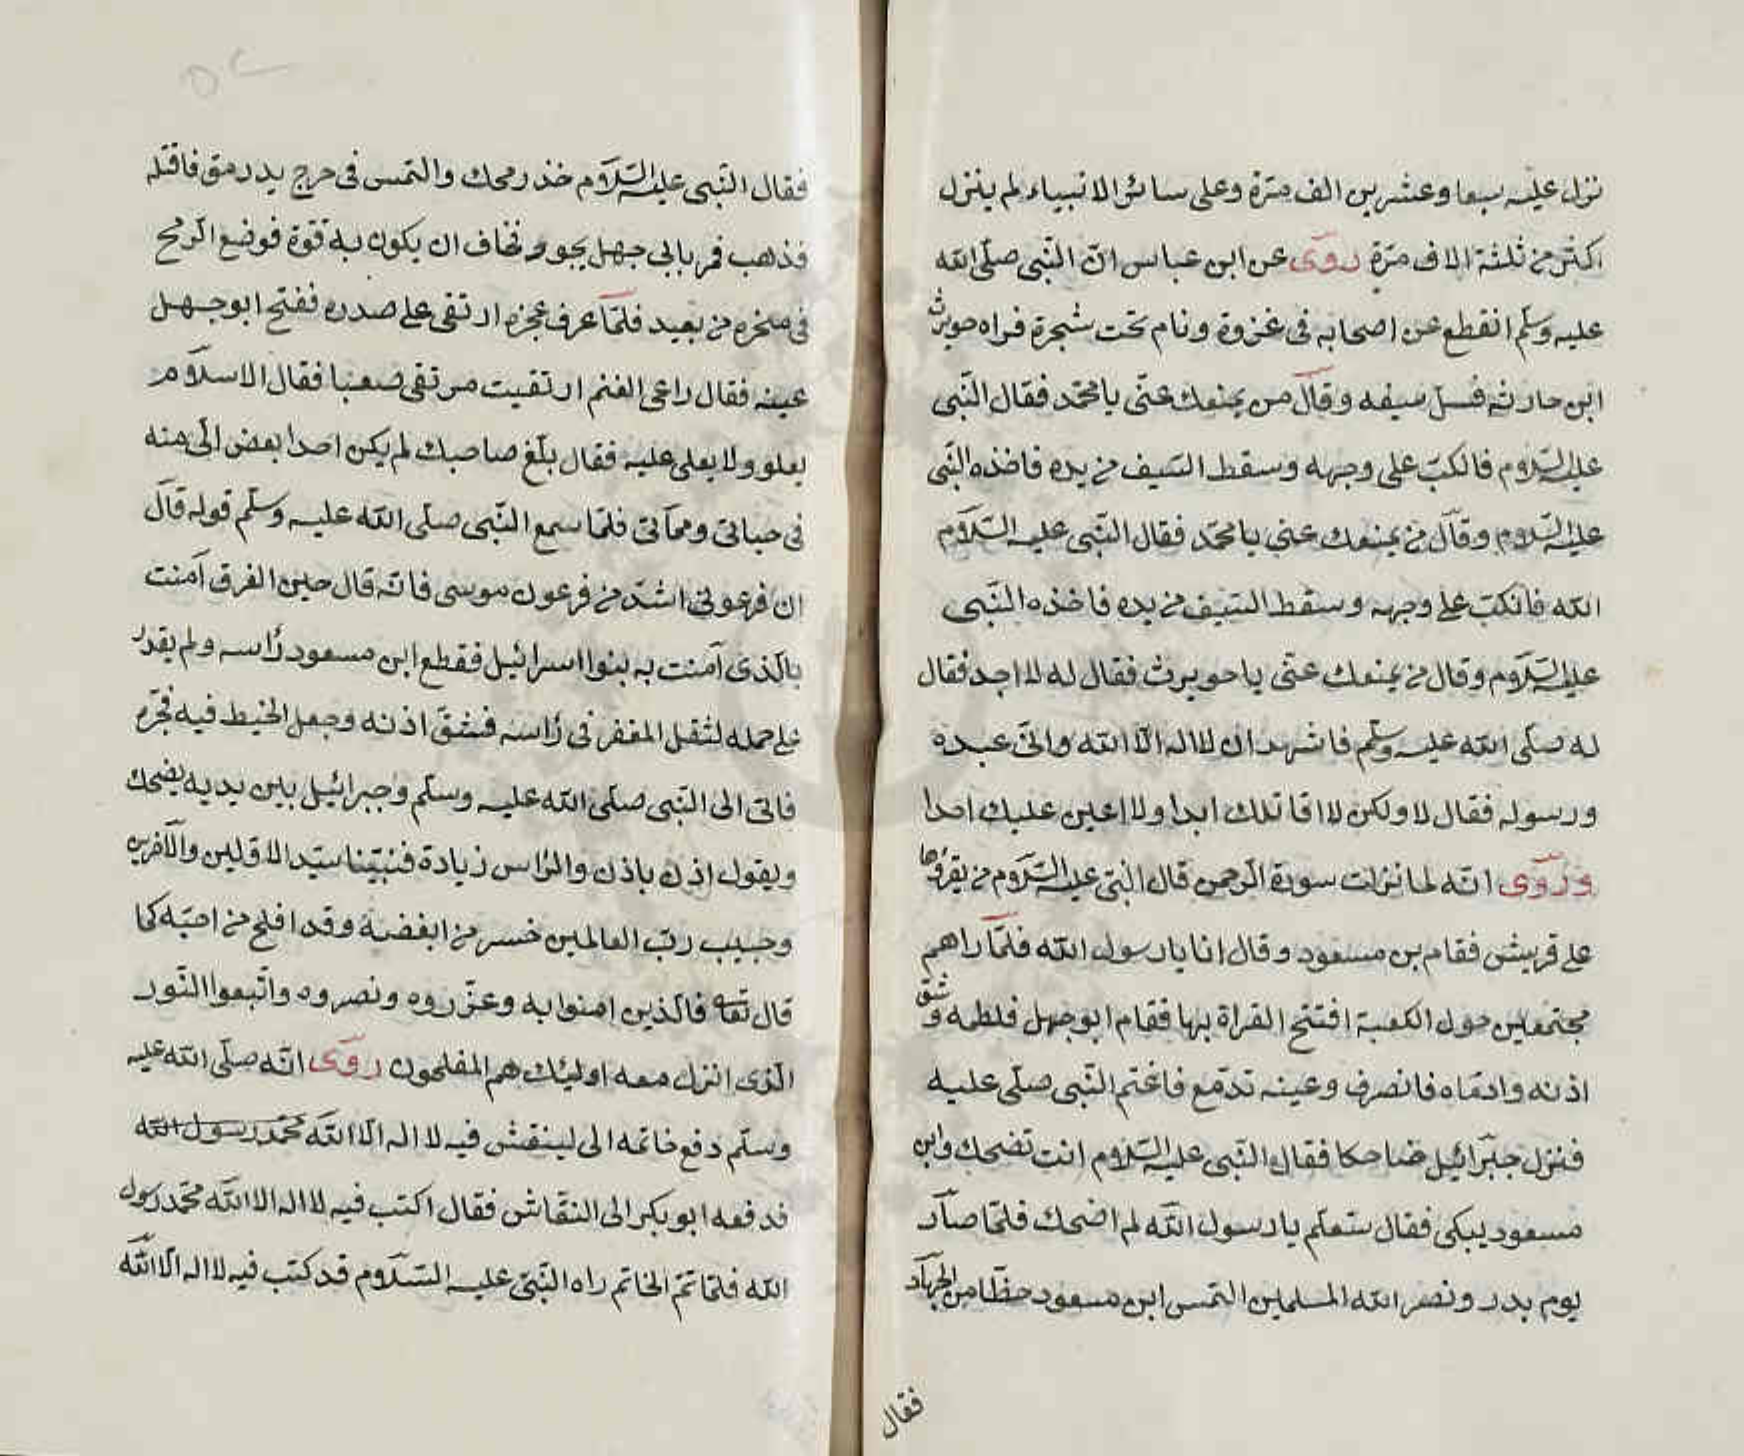 نزل عليه سبعا وعشرين الف مرّة وعلى سائر الانبياء لم ينزل
اكثر من ثلثة الاف مرّة روى عن ابن عباس انّ النّبى صلّى الله
عليه وسلّم انقطع عن اصحابه فى غزوة ونام تحت شجرة فراه حويرث
ابن حارثه فسلّ سيفه وقال من يمنعك عنّى يا محمّد فقال النّبى
عليه السّلام فالكبّ على وجهه وسقط السّيف من يده فاخذه النّبى
عليه السّلام وقال من يمنعك عنى يا محمّد فقال النّبى عليه السّلام
الله فانكبّ على وجهه وسقط السّيف من يده فاخذه النّبى
عليه السّلام وقال من يمنعك عنّى يا حويرث فقال له لا اجد فقال
له صلّى الله عليه وسلّم فاشهد ان لا اله الّا الله وانّى عبده
ورسوله فقال لا ولكن لا اقاتلك ابدا ولا اعين عليك احدا
وروى انّه لما نزلت سورة الرّحمن قال النّبى عليه السّلام من يقرؤها
على قريش فقام بن مسعود وقال انا يا رسول الله فلمّا راهم
مجتمعين حول الكعبة افتتح القراة بها فقام ابو جهل فلطمه وشق
اذنه وادماه فانصرف وعينه تدمع فاغتم النّبى صلّى عليه
فنزل جبرائيل ضاحكا فقال النّبى عليه السّلام انت تضحك وابن
مسعود يبكى فقال ستعلم يا رسول الله لم اضحك فلمّا صار
يوم بدر ونصر الله المسلمين التمس ابن مسعود حظّا من الجهاد
فقال
فقال النّبى عليه السّلام خذ رمحك والتمس فى جرح به رمق فاقتله
فذهب فمر بابى جهل يجود فخاف ان يكون به قوّة فوضع الرّمح
فى منخره من بعيد فلمّا عرف عجزه ارتقى على صدره ففتح ابو جهل
عينه فقال راعى الغنم ارتقيت مرتقى صعبا فقال الاسلام
يعلو ولا يعلى عليه فقال بلّغ صاحبك لم يكن احدا بغض الىّ منه
فى حياتى ومماتى فلمّا سمع النّبى صلّى الله عليه وسلّم قوله قال
ان فرعونى اشدّ من فرعون موسى فانّه قال حين الغرق آمنت
بالّذى آمنت به بنوا اسرائيل فقطع ابن مسعود رأسه ولم يقدر
على حمله لثقل المغفر فى رأسه فشقّ اذنه وجعل الخيط فيه فجرّه
فاتى الى النّبى صلّى الله عليه وسلّم وجبرائيل بين يديه يضحك
ويقول اذن باذن والرّاس زيادة فنبيّنا سيّد الاوّلين والآخرين
وحبيب ربّ العالمين خسر من ابغضه وقد افلح من احبّه كما
قال تعالى فالّذين امنوا به وعزّروه ونصروه واتّبعوا النّور
الّذى انزل معه اوليئك هم المفلحون روى انّه صلّى الله عليه
وسلّم دفع خاتمه الى لينقش فيه لا اله الّا الله محمّد رسول الله
فدفعه ابو بكر الى النقّاش فقال اكتب فيه لا اله الا الله محمّد رسول
الله فلمّا تمّ الخاتم راه النّبىّ عليه السّلام قد كتب فيه لا اله الّا الله